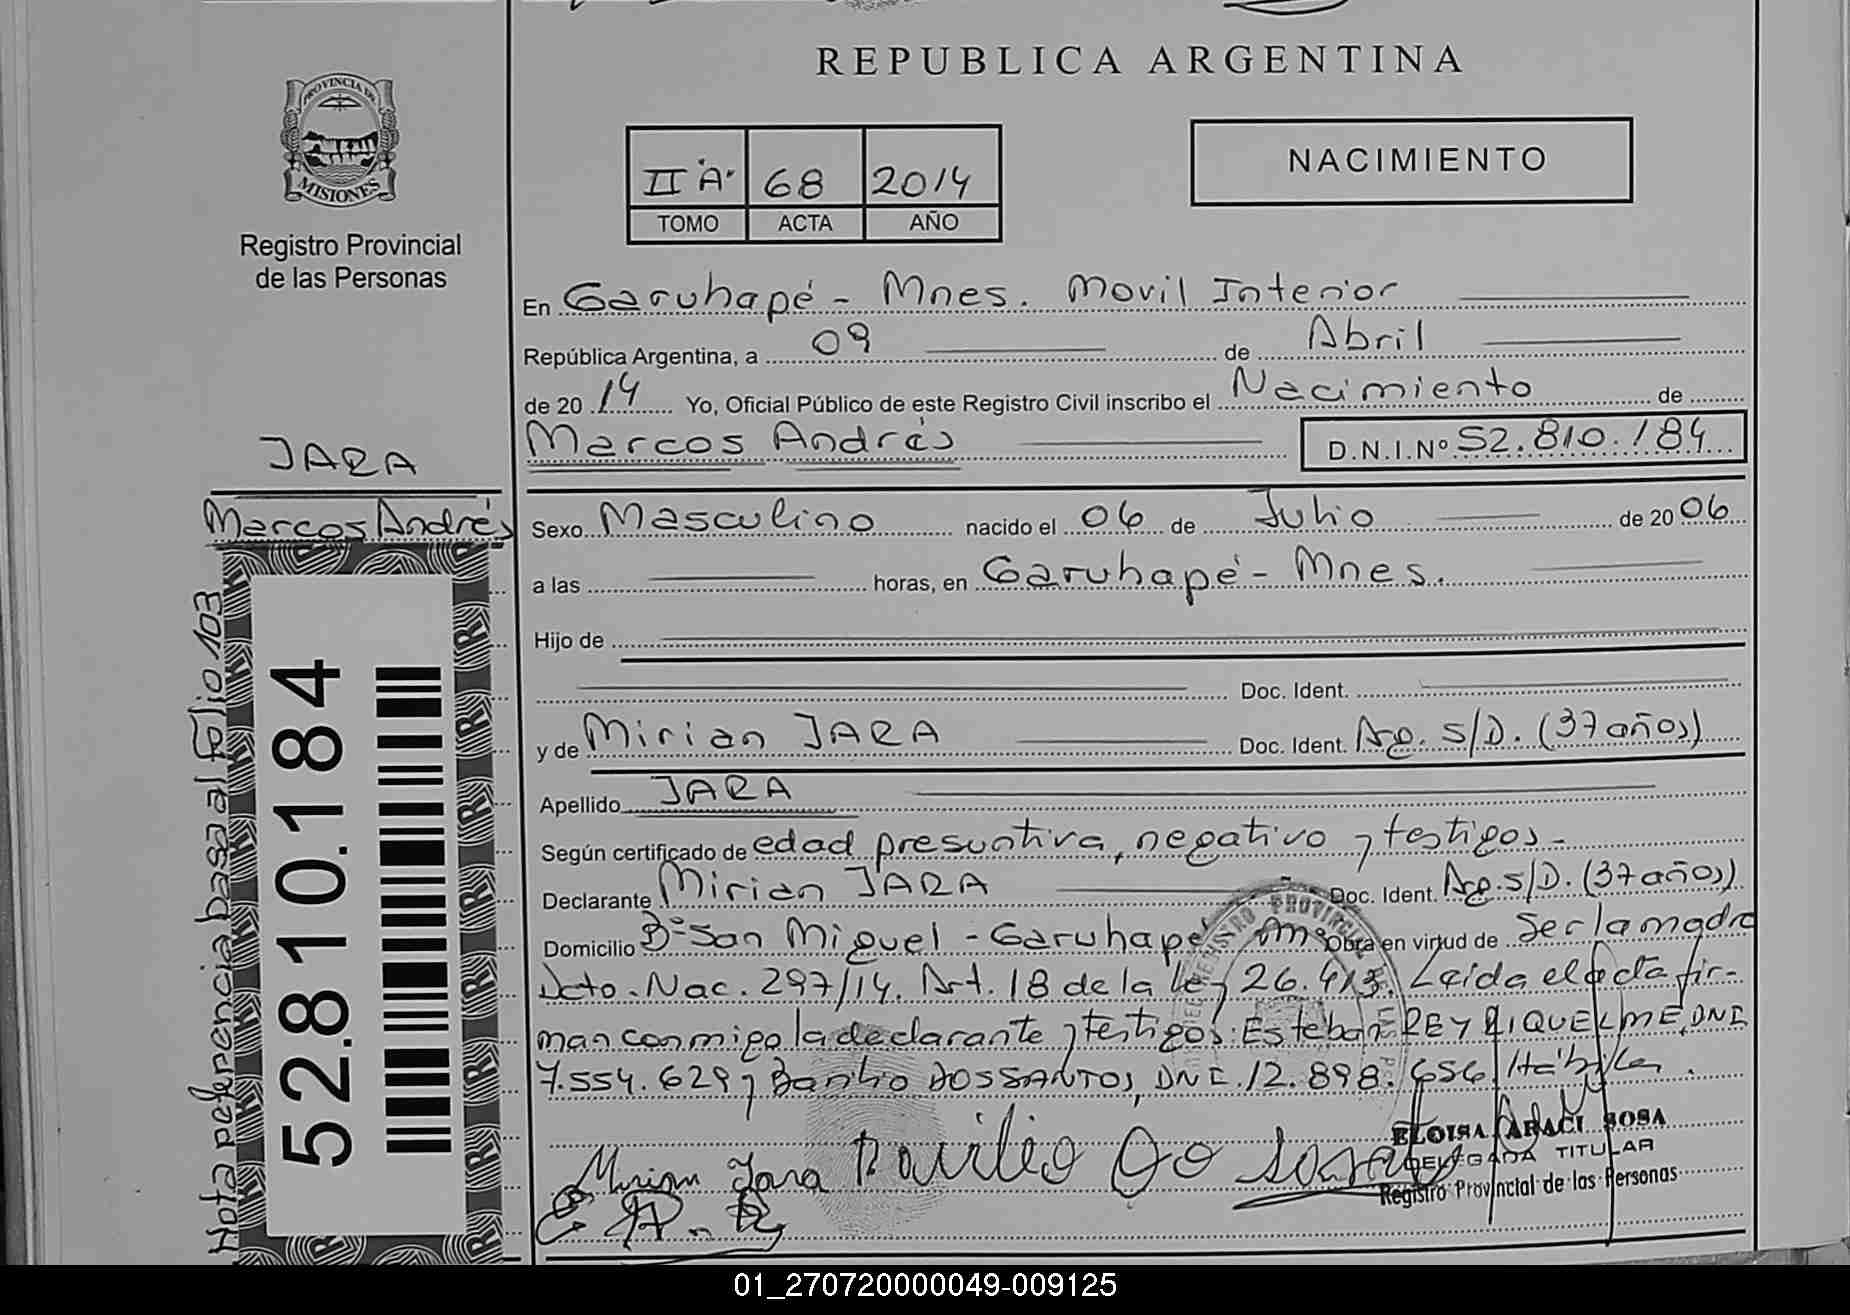 REPUBLICA ARGENTINA
PROVINCIA DE
MISIONES
Registro Provincial
de las Personas
II "A" 68 2014
TOMO ACTA AÑO
NACIMIENTO
En Garuhapé - Mnes. Movil Interior
República Argentina, a 09 de Abril
de 2014 Yo, Oficial Público de este Registro Civil inscribo el Nacimiento de
Marcos Andrés D.N.I.Nº 52.810.184
JARA
Marcos Andrés
Sexo Masculino nacido el 06 de Julio de 2006
a las horas, en Garuhapé - Mnes.
Hijo de
Doc. Ident.
y de Mirian JARA Doc. Ident. Arg. S/D. (37 años)
Apellido JARA
Según certificado de edad presuntiva, negativo y testigos.
Declarante Mirian JARA Doc. Ident. Arg. S/D. (37 años)
Domicilio Bº San Miguel - Garuhapé Mnes Obra en virtud de Ser la madre
Dcto. Nac. 297/14. Art. 18 de la Ley 26.413. Leída el acta fir-
man conmigo la declarante y testigos: Esteban REY RIQUELME, DNI
7.554.629 y Basilio DOSSANTOS, DNI. 12.898.656 Hábiles.
Mirian Jara
ELOISA ARACI SOSA
DELEGADA TITULAR
Registro Provincial de las Personas
REGISTRO PROVINCIAL
Nota referencia basa al Folio 103
52.810.184
01_270720000049-009125